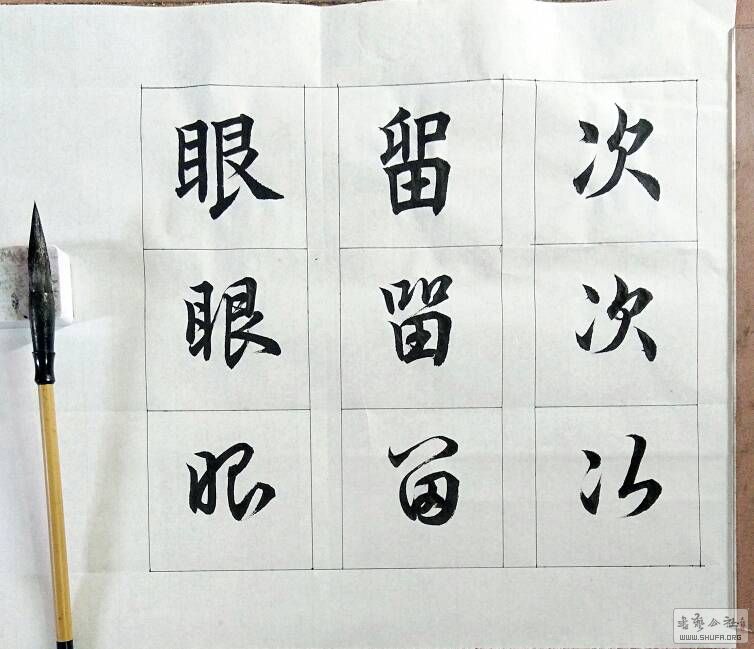 次 留 眼
次 留 眼
次 留 眼
书艺公社
WWW.SHUFA.ORG